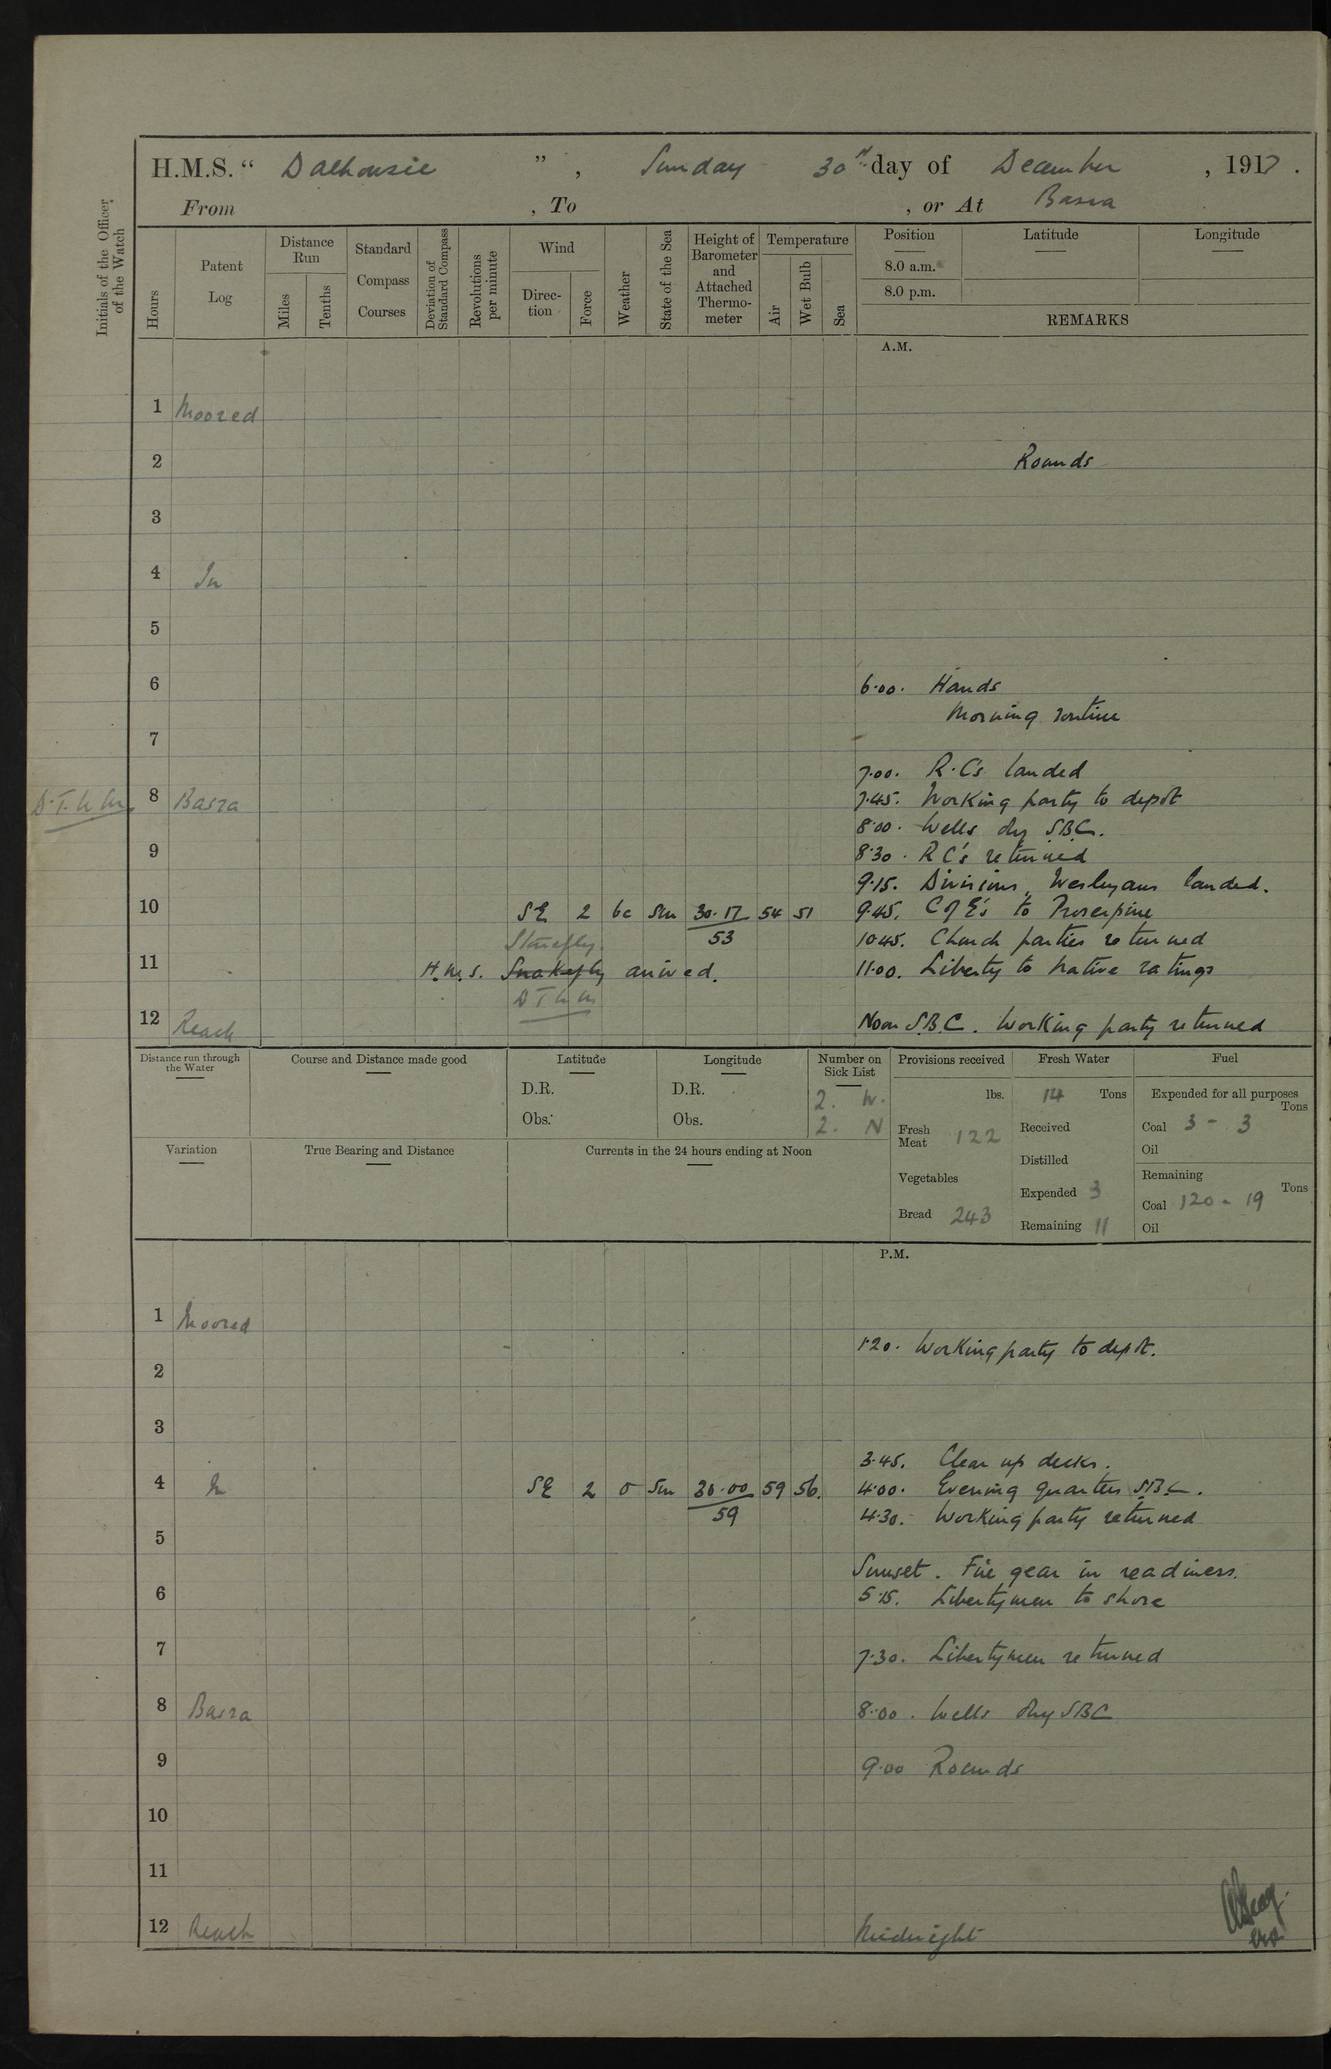 H.M.S. “ Dalhousie ”, Sunday 30th day of December, 1917.
From , To , or At Basra
Initials of the Officer of the Watch
Hours
Patent Log
Distance Run
Miles
Tenths
Standard Compass Courses
Deviation of Standard Compass
Revolutions per minute
Wind
Direc-tion
Force
Weather
State of the Sea
Height of Barometer and Attached Thermo-meter
Temperature
Air
Wet Bulb
Sea
Position Latitude Longitude
8.0 a.m.
8.0 p.m.
REMARKS
A.M.
1 Moored
2 Rounds
3
4 In
5
6 6.00. Hands
Morning routine
7
7.00. R.C's landed
8 Basra 7.45. Working party to depôt
8.00. Wells dry SBC.
9 8.30. RC's returned
9.15. Divisions, Wesleyans landed.
10 SE 2 bc Sm 30.17 54 51 9.45. C of E's to Proserpine
53
Stonefly. 10.45. Church parties returned
11 H.M.S. Snakefly arrived. 11.00. Liberty to native ratings
12 Reach Noon S.B.C. Working party returned
Distance run through the Water
Course and Distance made good
Latitude
D.R.
Obs.
Longitude
D.R.
Obs.
Number on Sick List
2. W.
2. N
Provisions received
lbs.
Fresh Meat 122
Vegetables
Bread 243
Fresh Water
14 Tons
Received
Distilled
Expended 3
Remaining 11
Fuel
Expended for all purposes
Tons
Coal 3 - 3
Oil
Remaining
Tons
Coal 120 - 19
Oil
Variation
True Bearing and Distance
Currents in the 24 hours ending at Noon
P.M.
1 Moored
1.20. Working party to depôt.
2
3
3.45. Clear up decks.
4 In SE 2 o Sm 30.00 59 56. 4.00. Evening quarters SBC.
59 4.30. Working party returned
5
Sunset. Fire gear in readiness.
6 5.15. Libertymen to shore
7 7.30. Libertymen returned
8 Basra 8.00. Wells dry SBC
9 9.00 Rounds
10
11
12 Reach Midnight